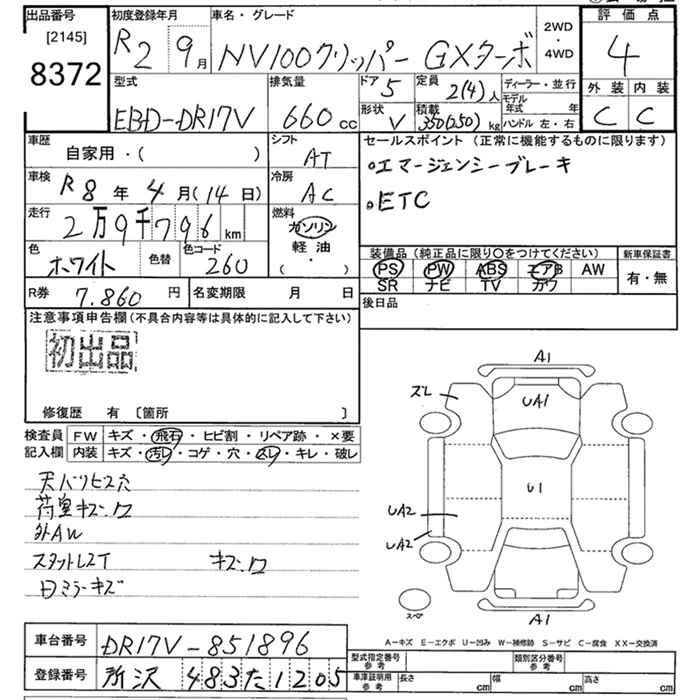 出品番号
[2145]
8372
初度登録年月
R2 9月
車名・グレード
NV100クリッパー GXターボ
2WD
・
4WD
評価点
4
外装 内装
C C
型式
EBD-DR17V
排気量
660cc
ドア
5
形状
V
定員
2(4)人
積載
350(250)kg
ディーラー・並行
モデル年式 年
ハンドル 左・右
車歴
自家用・( )
シフト
AT
車検
R8年4月(14日)
冷房
AC
走行
2万9千796km
燃料
ガソリン
軽油
( ・ )
色
ホワイト
色替
色コード
260
R券
7.860円
名変期限 月 日
セールスポイント (正常に機能するものに限ります)
・エマージェンシーブレーキ
・ETC
装備品 (純正品に限り〇をつけてください)
PS PW ABS エアB AW
SR ナビ TV カワ
新車保証書
有・無
後日品
注意事項申告欄(不具合内容等は具体的に記入して下さい)
初出品
修復歴 有〔箇所 〕
検査員記入欄
FW キズ・飛石・ヒビ割・リペア跡・×要
内装 キズ・汚レ・コゲ・穴・スレ・キレ・破レ
天バリビス穴
荷室キズ.ワ
外AW
スタットレスT キズ.ワ
日ミラーキズ
A1
ズレ
UA1
U1
UA2
UA2
スペア
A1
A-キズ E-エクボ U-凹み W-補修跡 S-サビ C-腐食 XX-交換済
車台番号
DR17V-851896
登録番号
所沢 483た1205
型式指定番号
参考
類別区分番号
参考
車庫証明用
参考
長さ cm
幅 cm
高さ cm